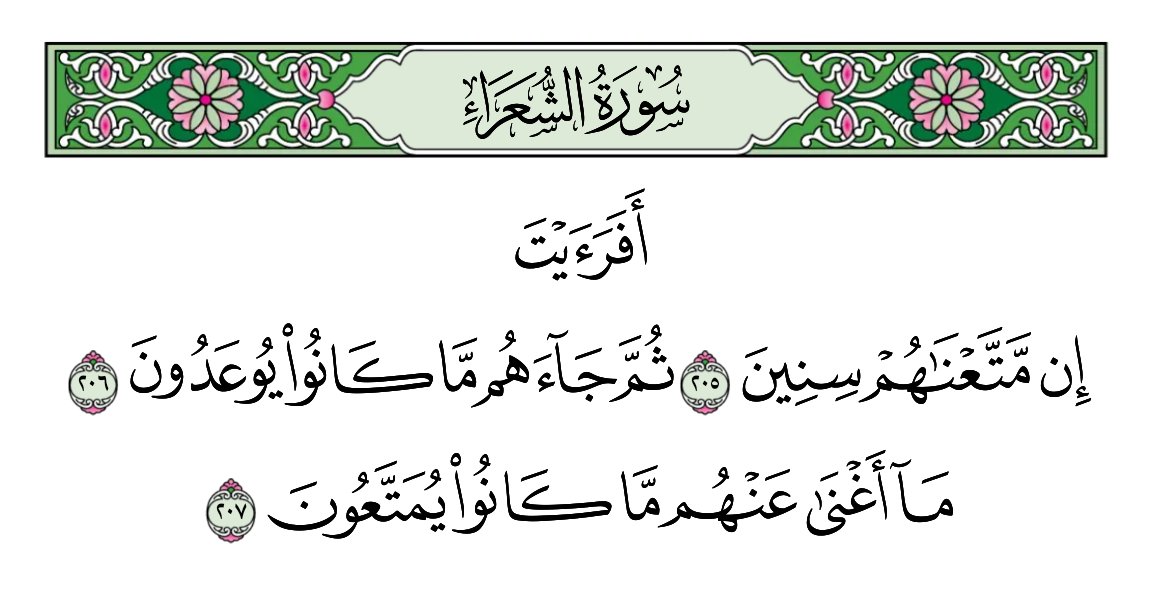 سُورَةُ الشُّعَرَاءِ
أَفَرَءَيْتَ
إِن مَّتَّعْنَٰهُمْ سِنِينَ ٢٠٥ ثُمَّ جَآءَهُم مَّا كَانُوا۟ يُوعَدُونَ ٢٠٦
مَآ أَغْنَىٰ عَنْهُم مَّا كَانُوا۟ يُمَتَّعُونَ ٢٠٧